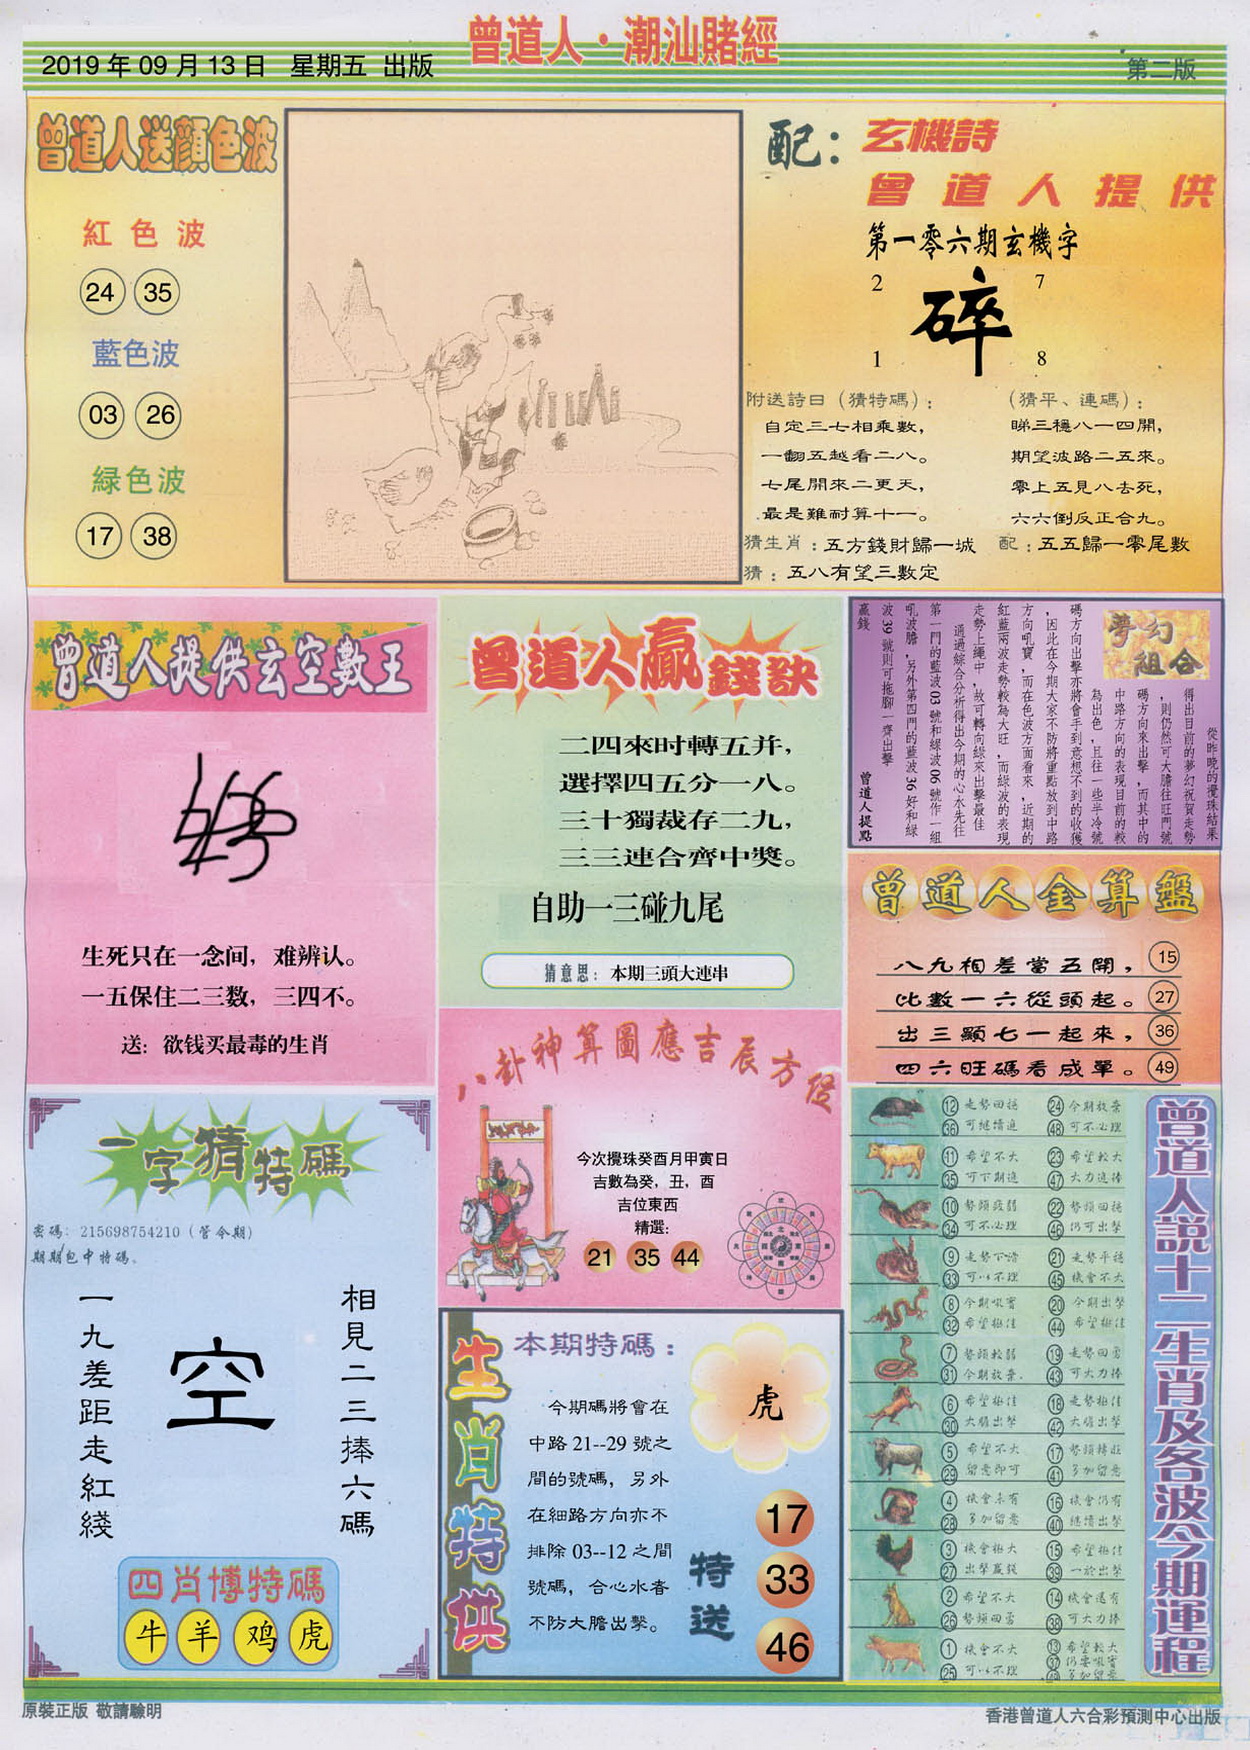 曾道人·潮汕賭經
2019年09月13日 星期五 出版
第二版
曾道人送顏色波
紅色波
24 35
藍色波
03 26
緑色波
17 38
配：玄機詩
曾道人提供
第一零六期玄機字
2 7
碎
1 8
附送詩曰（猜特碼）：
自定三七相乘數，
一翻五越看二八。
七尾開來二更天，
最是難耐算十一。
（猜平、連碼）：
睇三穩八一四開，
期望波路二五來。
零上五見八去死，
六六倒反正合九。
猜生肖：五方錢財歸一城 配：五五歸一零尾數
猜：五八有望三數定
曾道人提供玄空數王
生死只在一念间，难辨认。
一五保住二三数，三四不。
送：欲钱买最毒的生肖
曾道人贏錢訣
二四來时轉五并，
選擇四五分一八。
三十獨裁存二九，
三三連合齊中獎。
自助一三碰九尾
猜意思：本期三頭大連串
夢幻
組合
從昨晚的攪珠結果
得出目前的夢幻祝賀走勢
，則仍然可大膽往旺門號
碼方向來出擊，而其中的
中路方向的表現目前的較
為出色，且往一些半冷號
碼方向出擊亦將會手到意想不到的收獲
，因此在今期大家不防將重點放到中路
方向吼寶，而在色波方面看來，近期的
紅藍兩波走勢較為大旺，而綠波的表現
走勢上繩中，故可轉向綠來出擊最佳
通過綜合分析得出今期的心水先往
第一門的藍波03號和綠波06號作一組
吼波膽，另外第四門的藍波36好和綠
波39號則可拖腳一齊出擊
贏錢
曾道人提點
曾道人金算盤
八九相差當五開， 15
比數一六從頭起。 27
出三顯七一起來， 36
四六旺碼看成單。 49
八卦神算圖應吉辰方位
今次攪珠癸酉月甲寅日
吉數為癸，丑，酉
吉位東西
精選：
21 35 44
一字猜特碼
密碼：215698754210（管今期）
期期包中特碼。
相見二三捧六碼
空
一九差距走紅綫
四肖博特碼
牛 羊 鸡 虎
生肖特供
本期特碼：
虎
今期碼將會在
中路21--29號之
間的號碼，另外
在細路方向亦不
排除03--12之間
號碼，合心水者
不防大膽出擊。
特送
17
33
46
曾道人説十二生肖及各波今期運程
12 走勢回穩 24 今期放棄
36 可繼續追 48 可不必理
11 希望不大 23 希望較大
35 可下期追 47 大力追捧
10 勢頭疲弱 22 勢頭回穩
34 可不必理 46 仍可出擊
9 走勢下滑 21 走勢平穩
33 可以不理 45 機會不大
8 今期吸寶 20 今期出擊
32 希望極佳 44 希望極佳
7 勢頭較弱 19 走勢回勇
31 今期放棄 43 可大力捧
6 希望極佳 18 走勢極佳
30 大膽出擊 42 大膽出擊
5 希望不大 17 勢頭轉旺
29 留意即可 41 多加留意
4 機會未有 16 機會仍有
28 多加留意 40 繼續出擊
3 機會極大 15 希望極佳
27 出擊贏錢 39 一於出擊
2 希望不大 14 機會還有
26 勢頭回勇 38 可大力捧
1 機會不大 13 希望較大
25 可以不理 37 仍要吸寶
49 多加留意
原裝正版 敬請驗明
香港曾道人六合彩預測中心出版